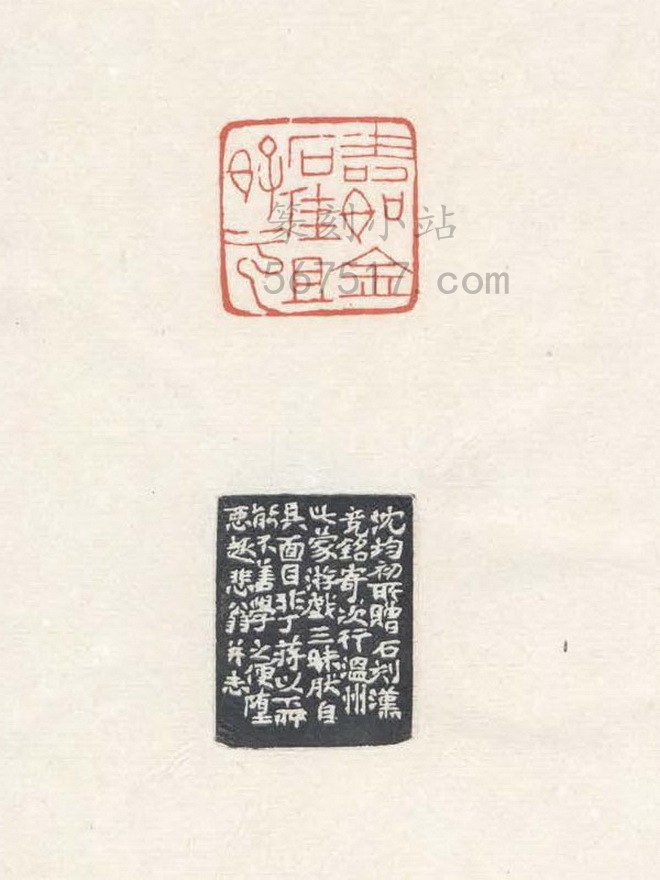 壽如金
石佳且
好兮
篆刻小站
567517.com
沈均初所贈石刻漢
竟銘寄次行溫州
此蒙游戲三昧肰自
具面目非丁蔣以下所
能不善學之便墮
惡趣悲翁并志